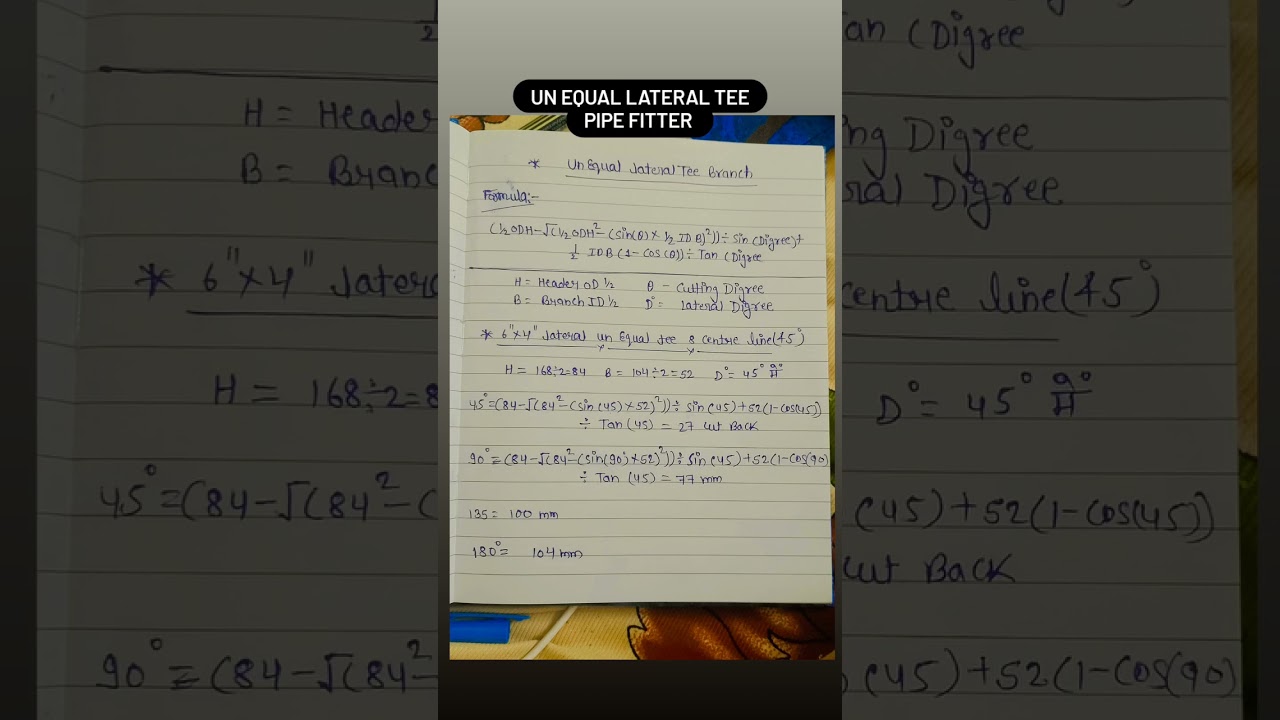 UN EQUAL LATERAL TEE
PIPE FITTER
* UnEqual lateral Tee Branch
Formula:-
(½ODH-√(½ODH²-(Sin(θ)×½IDB)²))÷Sin(Digree)+
½ IDB(1-COS(θ))÷Tan(Digree
H = Header OD ½ θ - Cutting Digree
B = Branch ID ½ D° = lateral Digree
* 6"×4" lateral un Equal tee & centre line(45°)
H = 168÷2=84 B = 104÷2=52 D°= 45°
45°=(84-√(84²-(sin(45)×52)²))÷sin(45)+52(1-cos(45))
÷ Tan(45) = 27 Cut Back
90°=(84-√(84²-(sin(90)×52)²))÷sin(45)+52(1-cos(90)
÷ Tan (45) = 77 mm
135= 100 mm
180°= 104 mm